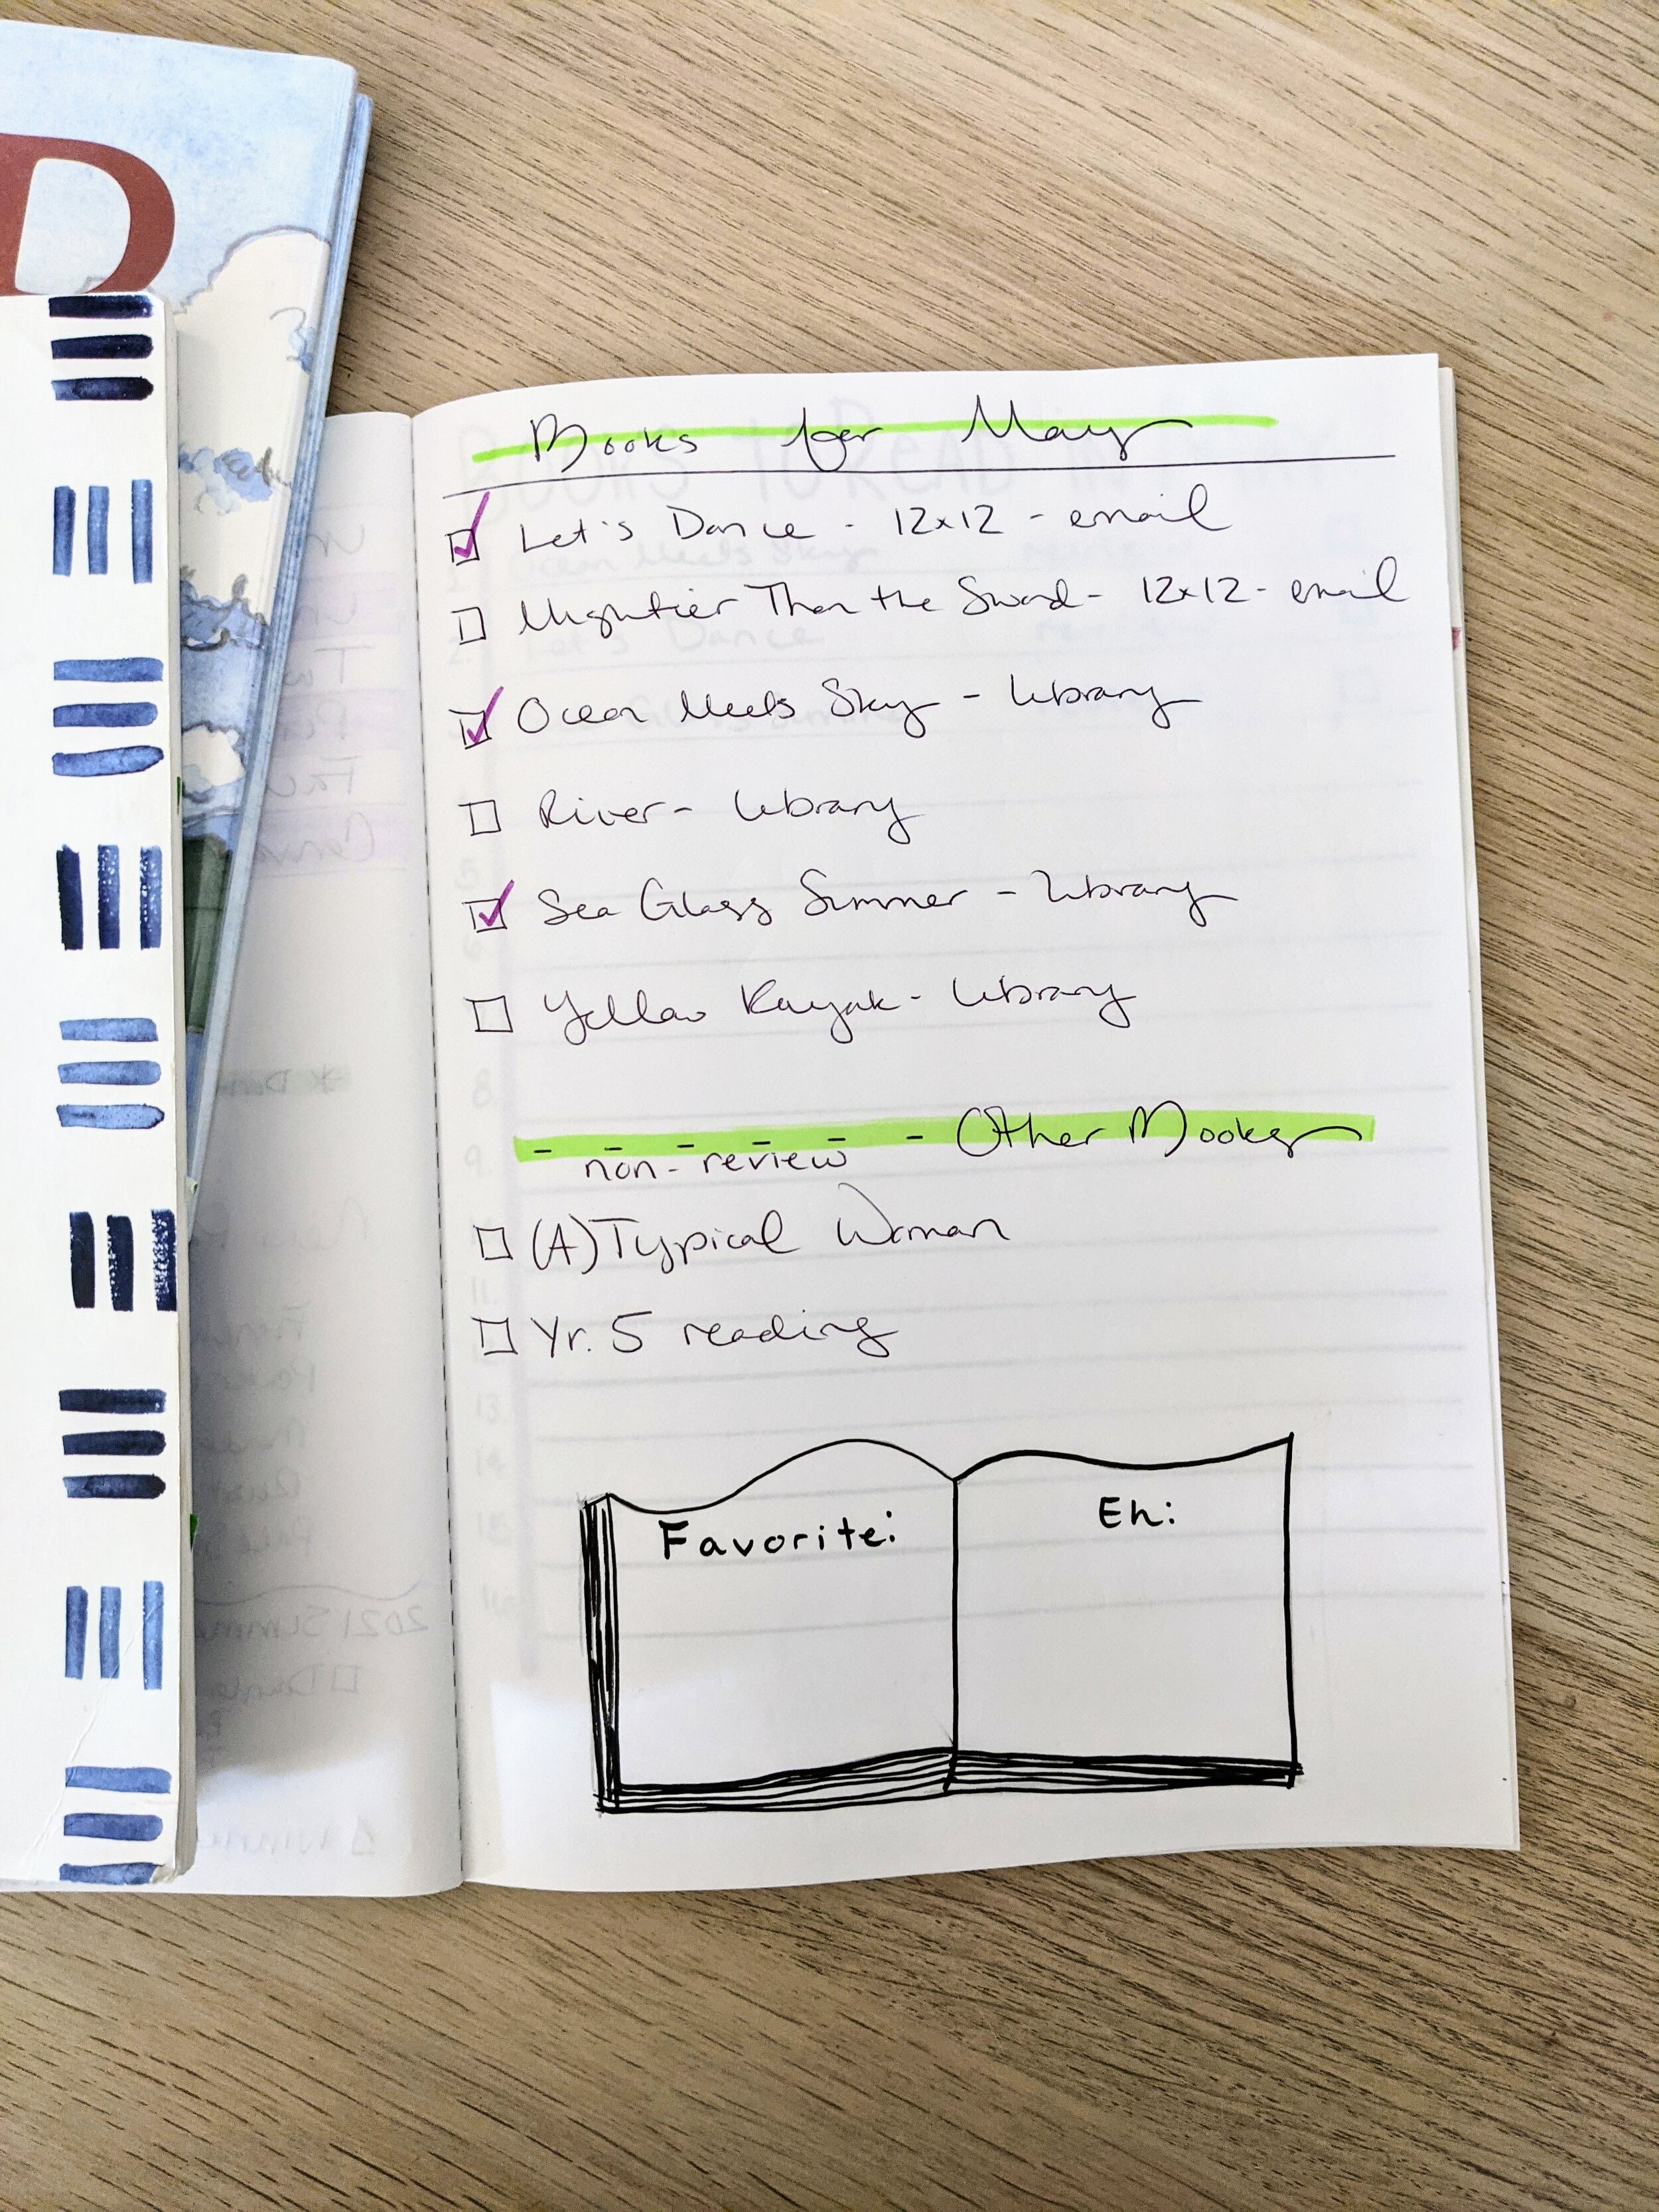 D
Books for May
Let's Dance - 12x12 - email
Mightier Than the Sword - 12x12 - email
Ocean Meets Sky - library
River - library
Sea Glass Summer - library
Yellow Kayak - library
- - - - - - Other Books
non-review
(A)Typical Woman
Yr. 5 reading
Favorite:
Eh: